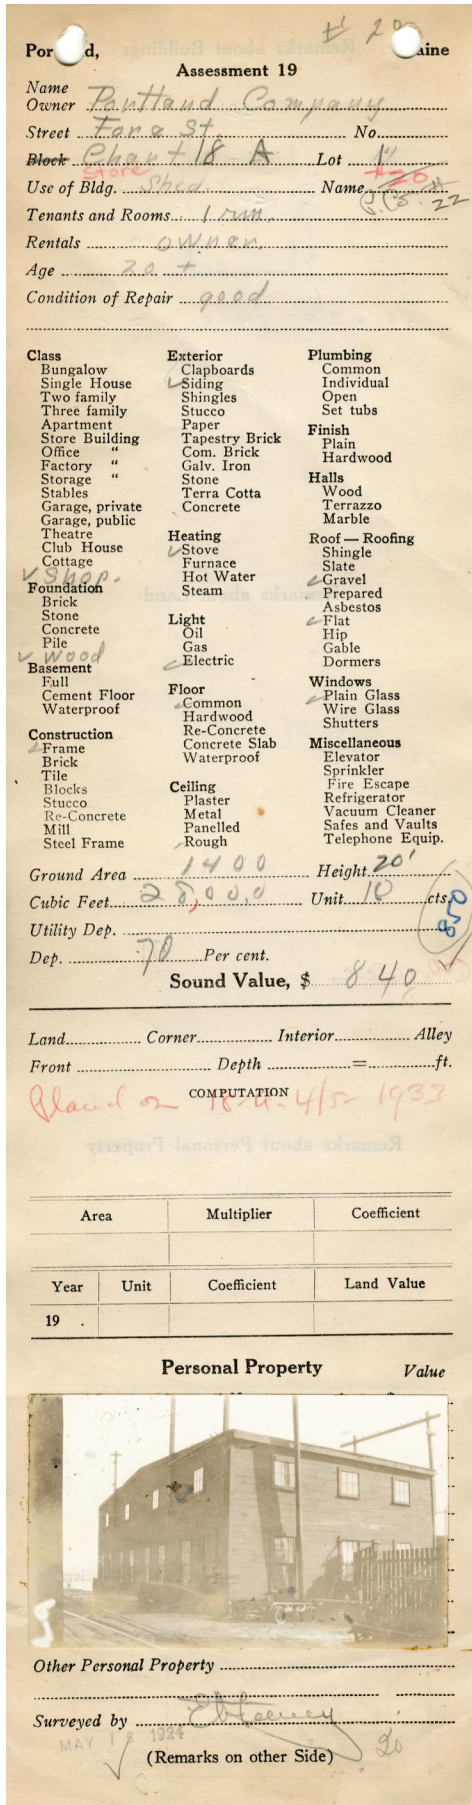 # 20
Por d, aine
Assessment 19
Name
Owner Portland Company
Street Fore St. No.
Block Chart 18 A Lot 1
Store
# 20
Use of Bldg. Shed. Name # 22
Tenants and Rooms 1 rm.
Rentals owner.
Age 20 +
Condition of Repair good
Class
Bungalow
Single House
Two family
Three family
Apartment
Store Building
Office "
Factory "
Storage "
Stables
Garage, private
Garage, public
Theatre
Club House
Cottage
✓ Shop.
Foundation
Brick
Stone
Concrete
Pile
✓ Wood
Basement
Full
Cement Floor
Waterproof
Construction
✓ Frame
Brick
Tile
Blocks
Stucco
Re-Concrete
Mill
Steel Frame
Exterior
Clapboards
✓ Siding
Shingles
Stucco
Paper
Tapestry Brick
Com. Brick
Galv. Iron
Stone
Terra Cotta
Concrete
Heating
✓ Stove
Furnace
Hot Water
Steam
Light
Oil
Gas
✓ Electric
Floor
✓ Common
Hardwood
Re-Concrete
Concrete Slab
Waterproof
Ceiling
Plaster
Metal
Panelled
✓ Rough
Plumbing
Common
Individual
Open
Set tubs
Finish
Plain
Hardwood
Halls
Wood
Terrazzo
Marble
Roof — Roofing
Shingle
Slate
✓ Gravel
Prepared
Asbestos
✓ Flat
Hip
Gable
Dormers
Windows
✓ Plain Glass
Wire Glass
Shutters
Miscellaneous
Elevator
Sprinkler
Fire Escape
Refrigerator
Vacuum Cleaner
Safes and Vaults
Telephone Equip.
Ground Area 1400 Height 20'
Cubic Feet 28,000 Unit 10 cts.
850
Utility Dep.
Dep. 70 Per cent.
Sound Value, $ 840
Land Corner Interior Alley
Front Depth = ft.
COMPUTATION
on 18-A-4/5- 1933
Area Multiplier Coefficient
Year Unit Coefficient Land Value
19 .
Personal Property Value
Other Personal Property
Surveyed by
MAY 1924
20
(Remarks on other Side)